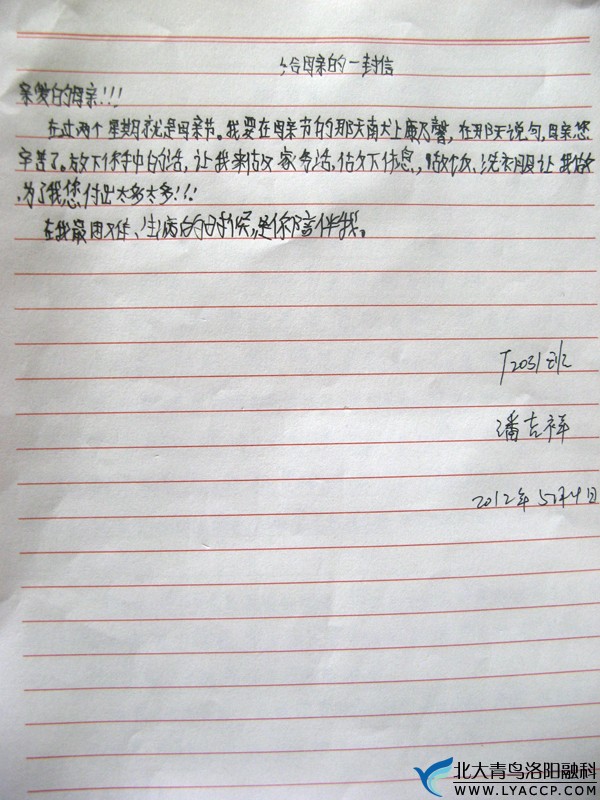 给母亲的一封信
亲爱的母亲!!!
在过两个星期就是母亲节。我要在母亲节的那天南犬上康乃馨,在那天说句,母亲您
辛苦了。放下你手中的活,让我来做家务活,估下休息,做饭、洗衣服让我做
为了我您付出太多太多!!!
在我最困难、生病的时候,是你陪伴我。
T2031班
潘吉祥
2012年5月4日
北大青鸟洛阳融科
WWW.LYACCP.COM